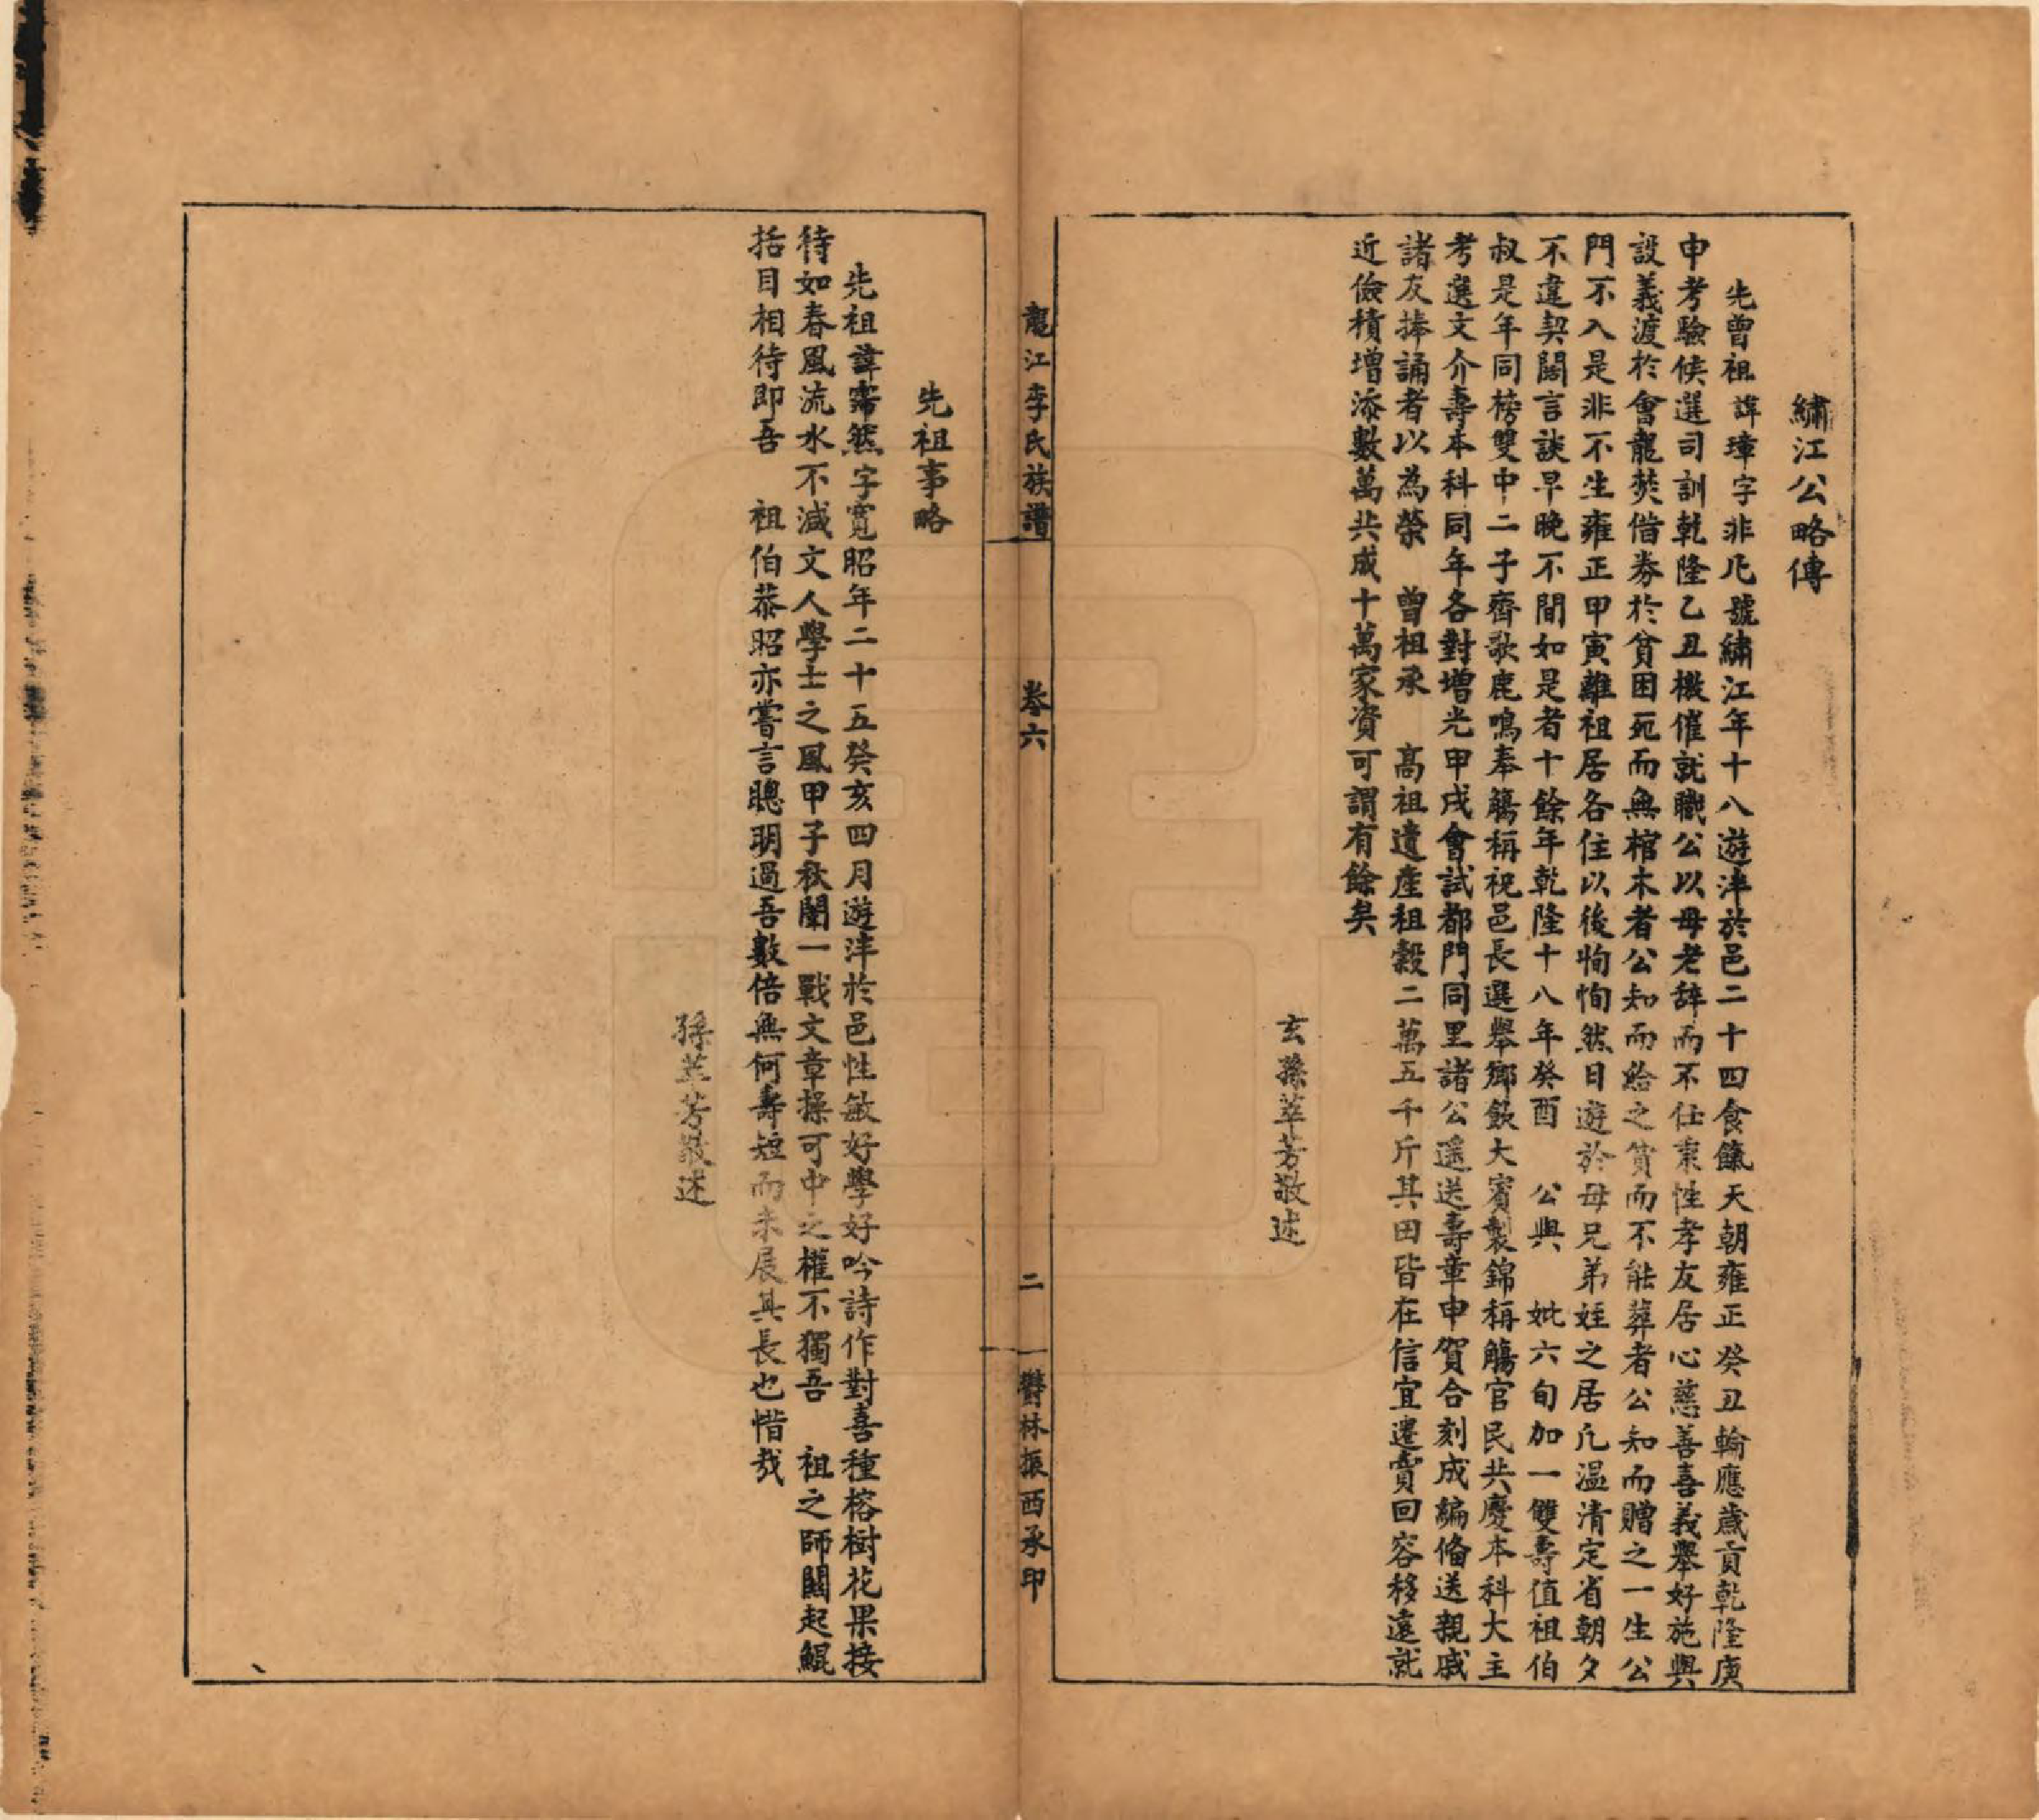 繡江公略傳
先曾祖諱璋字非凡號繡江年十八遊泮於邑二十四食餼天朝雍正癸丑輪應歲貢乾隆庚
申考驗候選司訓乾隆乙丑檄催就職公以母老辭而不仕秉性孝友居心慈善喜義舉好施與
設義渡於會龍焚借券於貧困死而無棺木者公知而給之貧而不能葬者公知而贈之一生公
門不入是非不生雍正甲寅離祖居各住以後恂恂然日遊於母兄弟姪之居凡温清定省朝夕
不違契闊言談早晚不間如是者十餘年乾隆十八年癸酉　公與　妣六旬加一雙壽值祖伯
叔是年同榜雙中二子齊歌鹿鳴奉觴稱祝邑長選舉鄉飲大賓製錦稱觴官民共慶本科大主
考選文介壽本科同年各對增光甲戌會試都門同里諸公遥送壽章申賀合刻成編俻送親戚
諸友捧誦者以為榮　曾祖承　高祖遺產租穀二萬五千斤其田皆在信宜遷賣回容移遠就
近儉積增添數萬共成十萬家資可謂有餘矣
玄孫萃芳敬述
龍江李氏族譜
卷六
二
鬱林振西承印
先祖事略
先祖諱霈然字寬昭年二十五癸亥四月遊泮於邑性敏好學好吟詩作對喜種榕樹花果接
待如春風流水不減文人學士之風甲子秋闈一戰文章操可中之權不獨吾　祖之師闕起鯤
括目相待即吾　祖伯恭昭亦嘗言聰明過吾數倍無何壽短而未展其長也惜哉
孫萃芳敬述